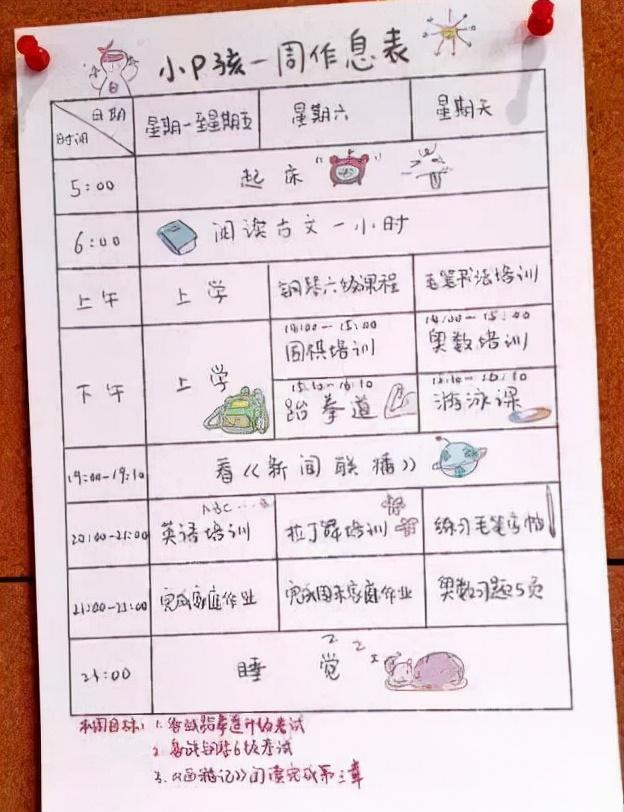 小P孩一周作息表
日期
时间
星期一至星期五 星期六 星期天
5:00 起床
6:00 阅读古文一小时
上午 上学 钢琴六级课程 毛笔书法培训
14:00-15:00 14:00-15:00
围棋培训 奥数培训
下午 上学
15:10-16:10 15:10-16:10
跆拳道 游泳课
19:00-19:10 看《新闻联播》
ABC...
20:00-21:00 英语培训 拉丁舞培训 练习毛笔字帖
21:00-23:00 完成家庭作业 完成周末家庭作业 奥数习题5页
23:00 睡觉 z z z
本周目标: 1. 备战跆拳道升级考试
2. 备战钢琴6级考试
3. 《西游记》阅读完成第三章